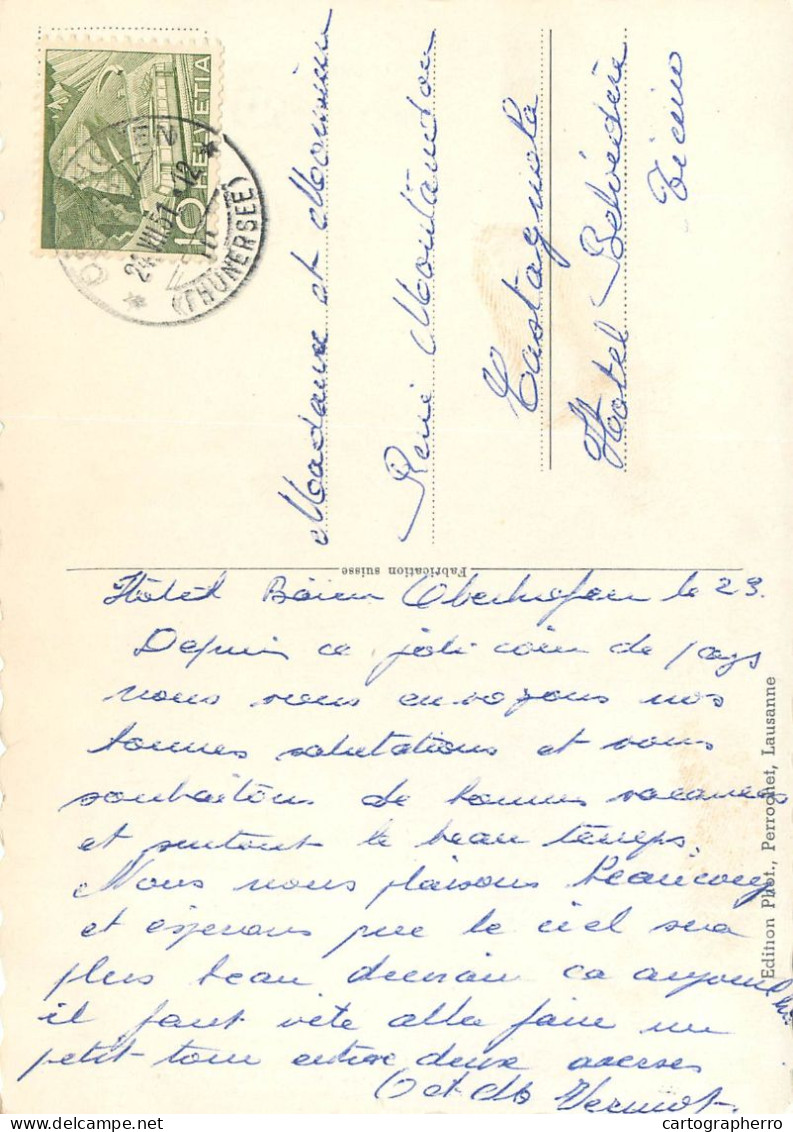 10 HELVETIA
24.VII.51 - 12
(THUNERSEE)
Madame et Monsieur
René Montandon
Castagnola
Hotel Belvédère
Ticino
Fabrication suisse
Hôtel Bären Oberhofen le 23.
Depuis ce joli coin de pays
nous vous envoyons nos
bonnes salutations et vous
souhaitons de bonnes vacances
et surtout le beau temps.
Nous nous plaisons beaucoup
et espérons que le ciel sera
plus beau demain ca aujourd'hui
il faut vite aller faire un
petit tour entre deux averses
O et Vermot.
Edition Phot., Perrochet, Lausanne
cartographerro